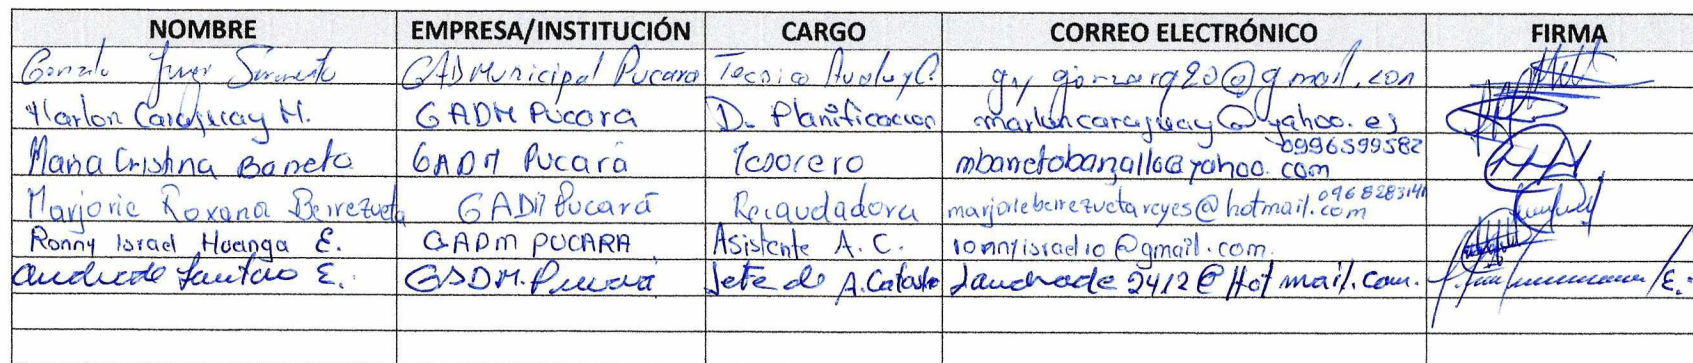 NOMBRE EMPRESA/INSTITUCIÓN CARGO CORREO ELECTRÓNICO FIRMA
Gonzalo Sarmiento GAD Municipal Pucara Tecnico Avaluy C.
Marlon Caraguay M. GADM Pucara D. Planificacion marloncaraguay@yahoo.es
0996599582
Maria Cristina Barreto GADM Pucará Tesorero
0968283141
Marjorie Roxana Berrezueta GADM Pucará Recaudadora marjorieberrezuetareyes@hotmail.com
Ronny Israel Huanga E. GADM PUCARA Asistente A. C. ronnyisrael10@gmail.com.
Andrade Lautaro E. GADM. Pucará Jefe de A. Catastro Landrade2412@Hotmail.com.